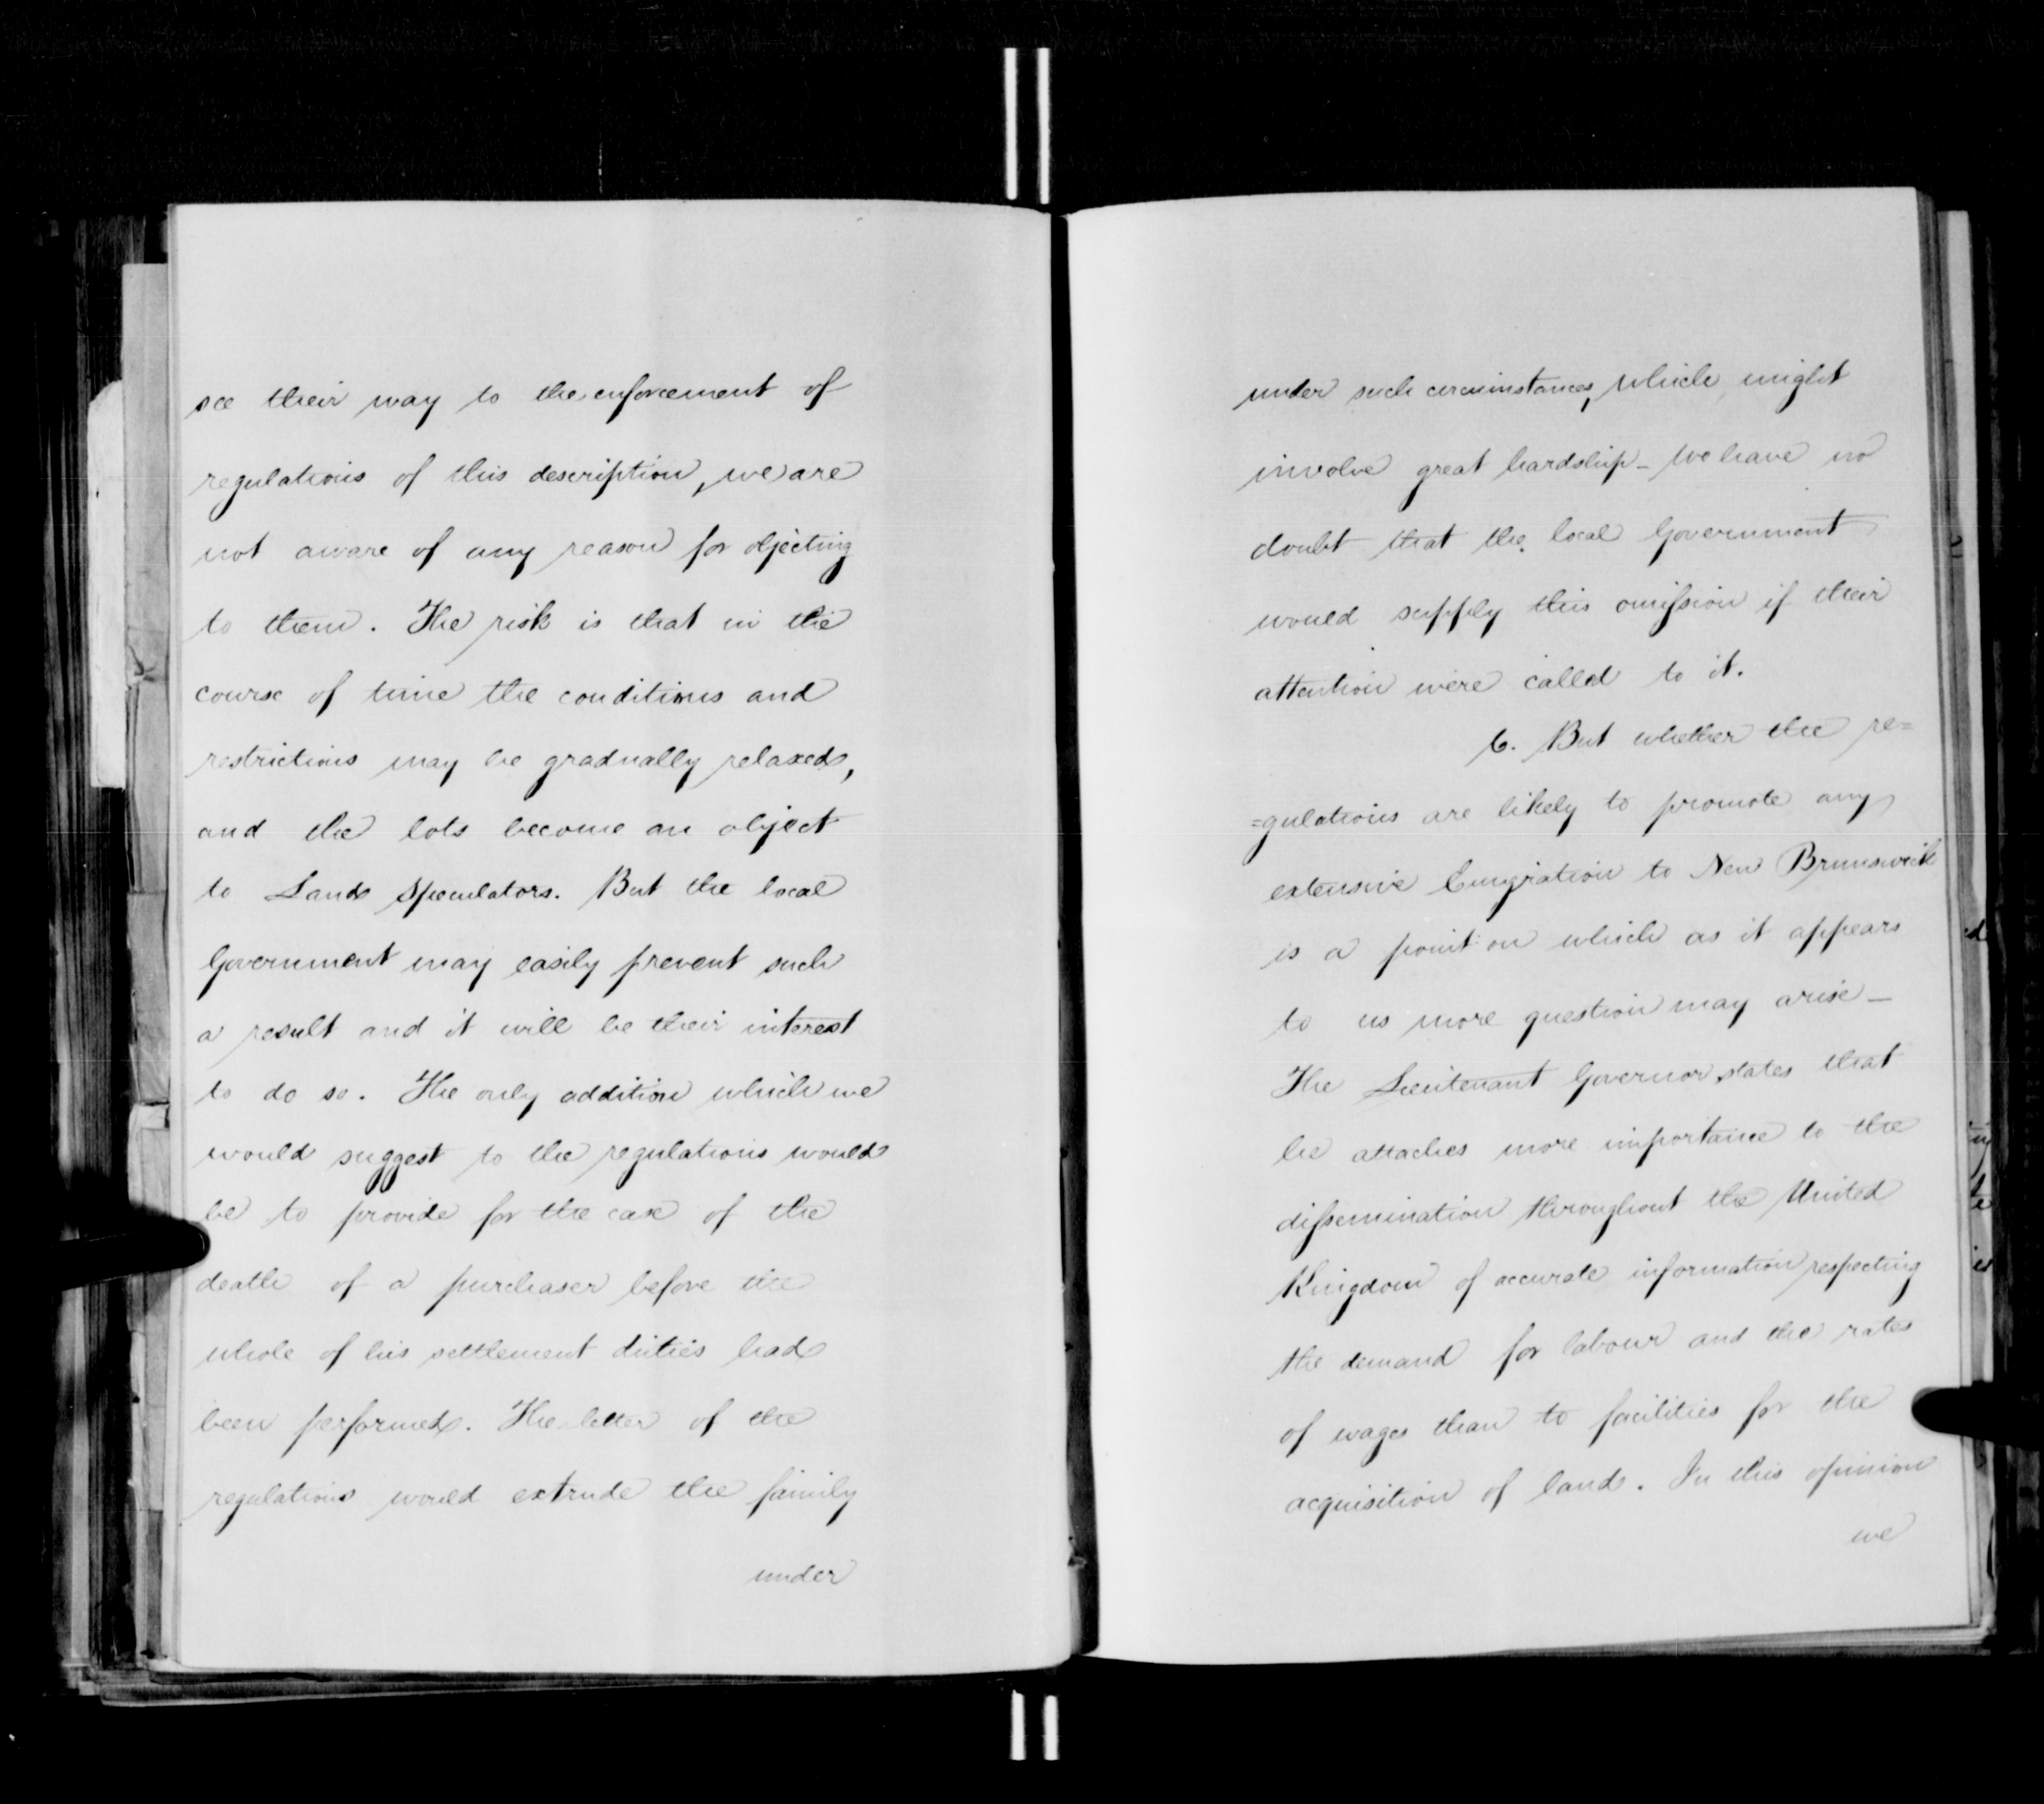 see their way to the enforcement of
regulations of this description, we are
not aware of any reason for objecting
to them. The risk is that in the
course of time the conditions and
restrictions may be gradually relaxed,
and the lots become an object
to Land Speculators. But the local
Government may easily prevent such
a result and it will be their interest
to do so. The only addition which we
would suggest to the regulations would
be to provide for the case of the
death of a purchaser before the
whole of his settlement duties had
been performed. The letter of the
regulations would extrude the family
under
under such circumstances, which might
involve great hardship_ We have no
doubt that the local Government
would supply this omission if their
attention were called to it.
6. But whether the re=
=gulations are likely to promote any
extensive Emigration to New Brunswick
is a point on which as it appears
to us more question may arise_
The Lieutenant Governor states that
he attaches more importance to the
dissemination throughout the United
Kingdom of accurate information respecting
the demand for labour and the rates
of wages than to facilities for the
acquisition of land. In this opinion
we